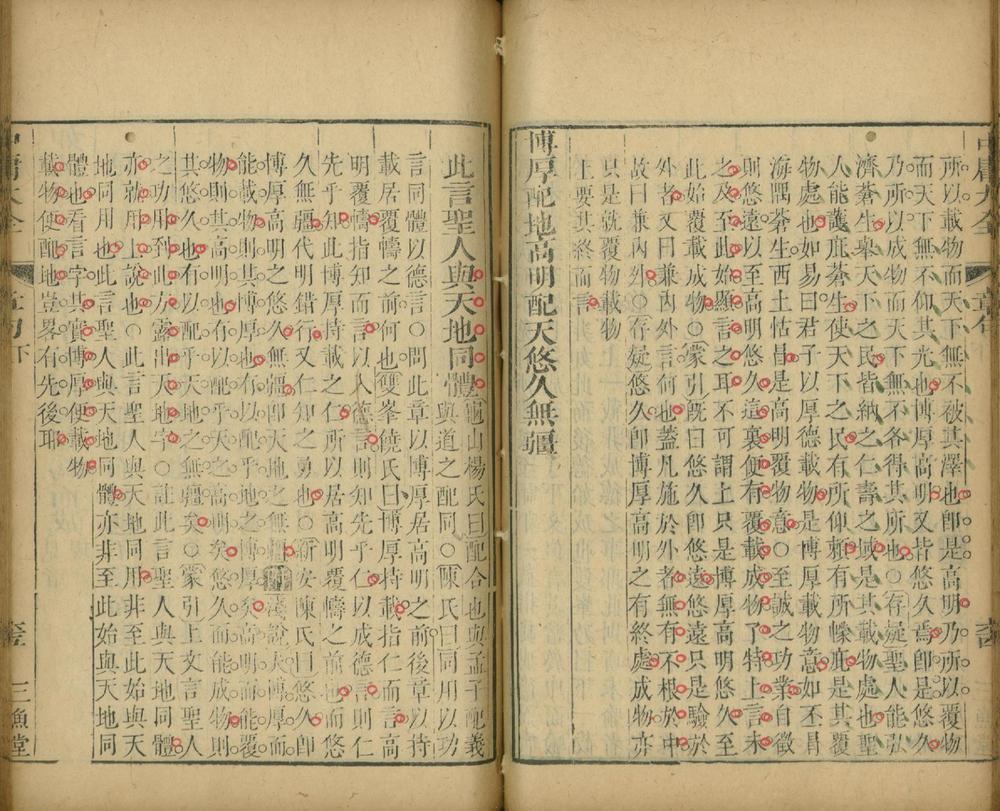 所以載物而天下無不被其澤也卽是高明乃所以覆物
而天下無不仰其光也博厚高明又皆悠久焉卽是悠久
乃所以成物而天下無不各得其所也○存疑聖人能弘
濟蒼生舉天下之民皆納之仁壽之域是其載物處也聖
人能護庇蒼生使天下之民有所仰賴有所幪庇是其覆
物處也如易曰君子以厚德載物是博厚載物意如丕冒
海隅蒼生西土怙冒是高明覆物意○至誠之功業自徵
則悠遠以至高明悠久這裏便有覆載成物了特上言未
之及又至此始顯言之耳不可謂上只是博厚高明悠久至
此始覆載成物○蒙引旣曰悠久卽悠遠悠遠只是驗於
外者又曰兼內外言何也蓋凡施於外者無有不根於中
故曰兼內外○存疑悠久卽博厚高明之有終處成物亦
只是就覆物載物
上要其終而言
博厚配地高明配天悠久無疆
此言聖人與天地同體
龜山楊氏曰配合也與孟子配義
與道之配同○陳氏曰同用以功
言同體以德言○問此章以博厚居高明之前後章以持
載居覆幬之前何也雙峯饒氏曰博厚持載指仁而言高
明覆幬指知而言以入德言則知先乎仁以成德言則仁
先乎知此博厚持載之仁所以居高明覆幬之前也而悠
久無疆代明錯行又仁知之勇也○新安陳氏曰悠久卽
博厚高明之悠久無疆卽天地之無疆
能載物則其博厚也有以配乎地之博厚矣高明而能覆
物則其高明也有以配乎天之高明矣悠久而能成物則
其悠久也有以配乎天地之無疆矣○蒙引上文言聖人
之功用到此方露出天地字○註此言聖人與天地同體
亦就用上說也○此言聖人與天地同用非至此始與天
地同用也此言聖人與天地同體亦非至此始與天地同
體也看言字其實博厚便載物
載物便配地豈畧有先後耶
章句下
三漁堂